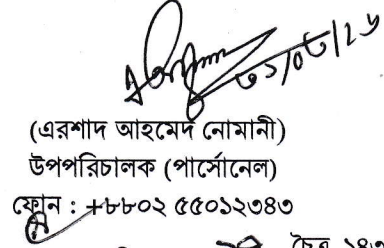 ৩১/০৩/২৬
(এরশাদ আহমেদ নোমানী)
উপপরিচালক (পার্সোনেল)
ফোন : +৮৮০২ ৫৫০১২৩৪৩
চৈত্র ১৪৩